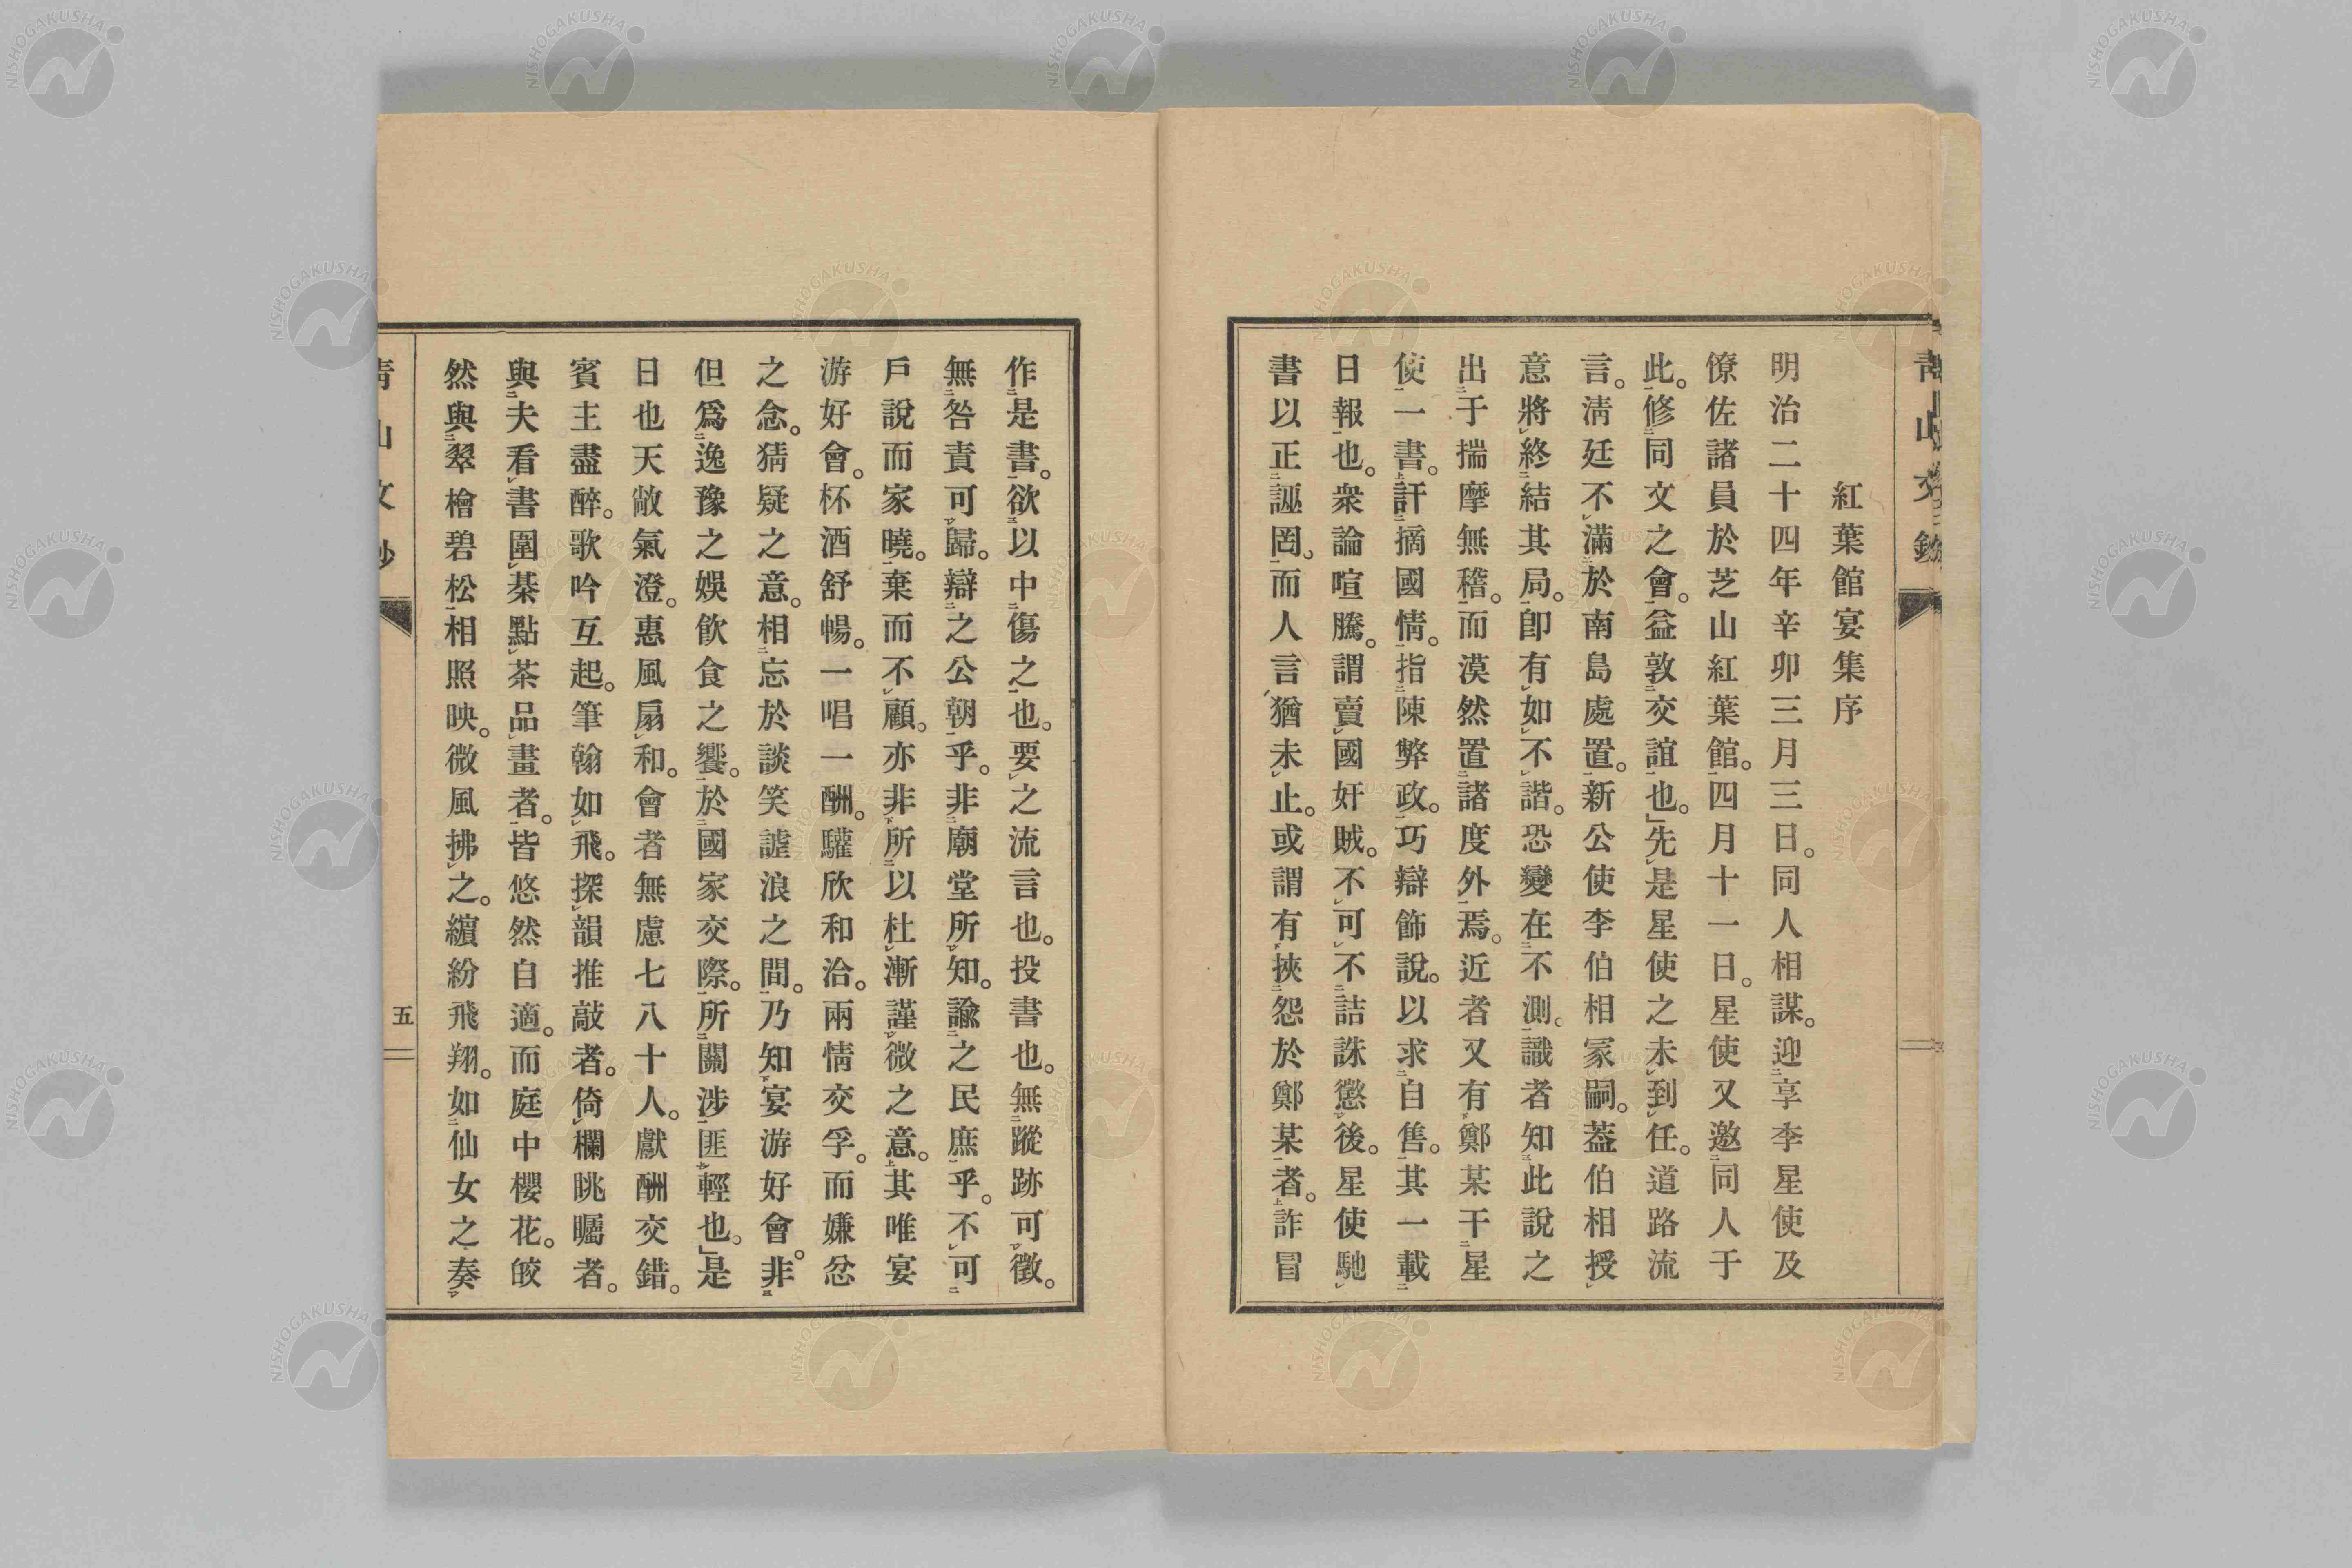 紅葉館宴集序
明治二十四年辛卯三月三日。同人相謀。迎享李星使及
僚佐諸員於芝山紅葉館。四月十一日。星使又邀同人于
此。修同文之會。益敦交誼也。」先是星使之未到任。道路流
言。淸廷不滿於南島處置。新公使李伯相冢嗣。蓋伯相授
意將終結其局。卽有如不諧。恐變在不測。識者知此說之
出于揣摩無稽。而漠然置諸度外焉。近者又有鄭某干星
使一書。訐摘國情。指陳弊政。巧辯飾說。以求自售。其一載
日報也。衆論喧騰。謂賣國奸賊。不可不詰誅懲後。星使馳
書以正誣罔。而人言猶未止。或謂有挾怨於鄭某者。詐冒
作是書。欲以中傷之也。要之流言也。投書也。無蹤跡可徵。
無咎責可歸。辯之公朝乎。非廟堂所知。諭之民庶乎。不可
戶說而家曉。棄而不顧。亦非所以杜漸謹微之意。其唯宴
游好會。杯酒舒暢。一唱一酬。驩欣和洽。兩情交孚。而嫌忿
之念。猜疑之意。相忘於談笑謔浪之間。乃知宴游好會。非
但爲逸豫之娛飮食之饗。於國家交際。所關涉匪輕也。」是
日也天敞氣澄。惠風扇和。會者無慮七八十人。獻酬交錯。
賓主盡醉。歌吟互起。筆翰如飛。探韻推敲者。倚欄眺矚者。
與夫看書圍棊點茶品畫者。皆悠然自適。而庭中櫻花。皎
然與翠檜碧松相照映。微風拂之。繽紛飛翔。如仙女之奏
五